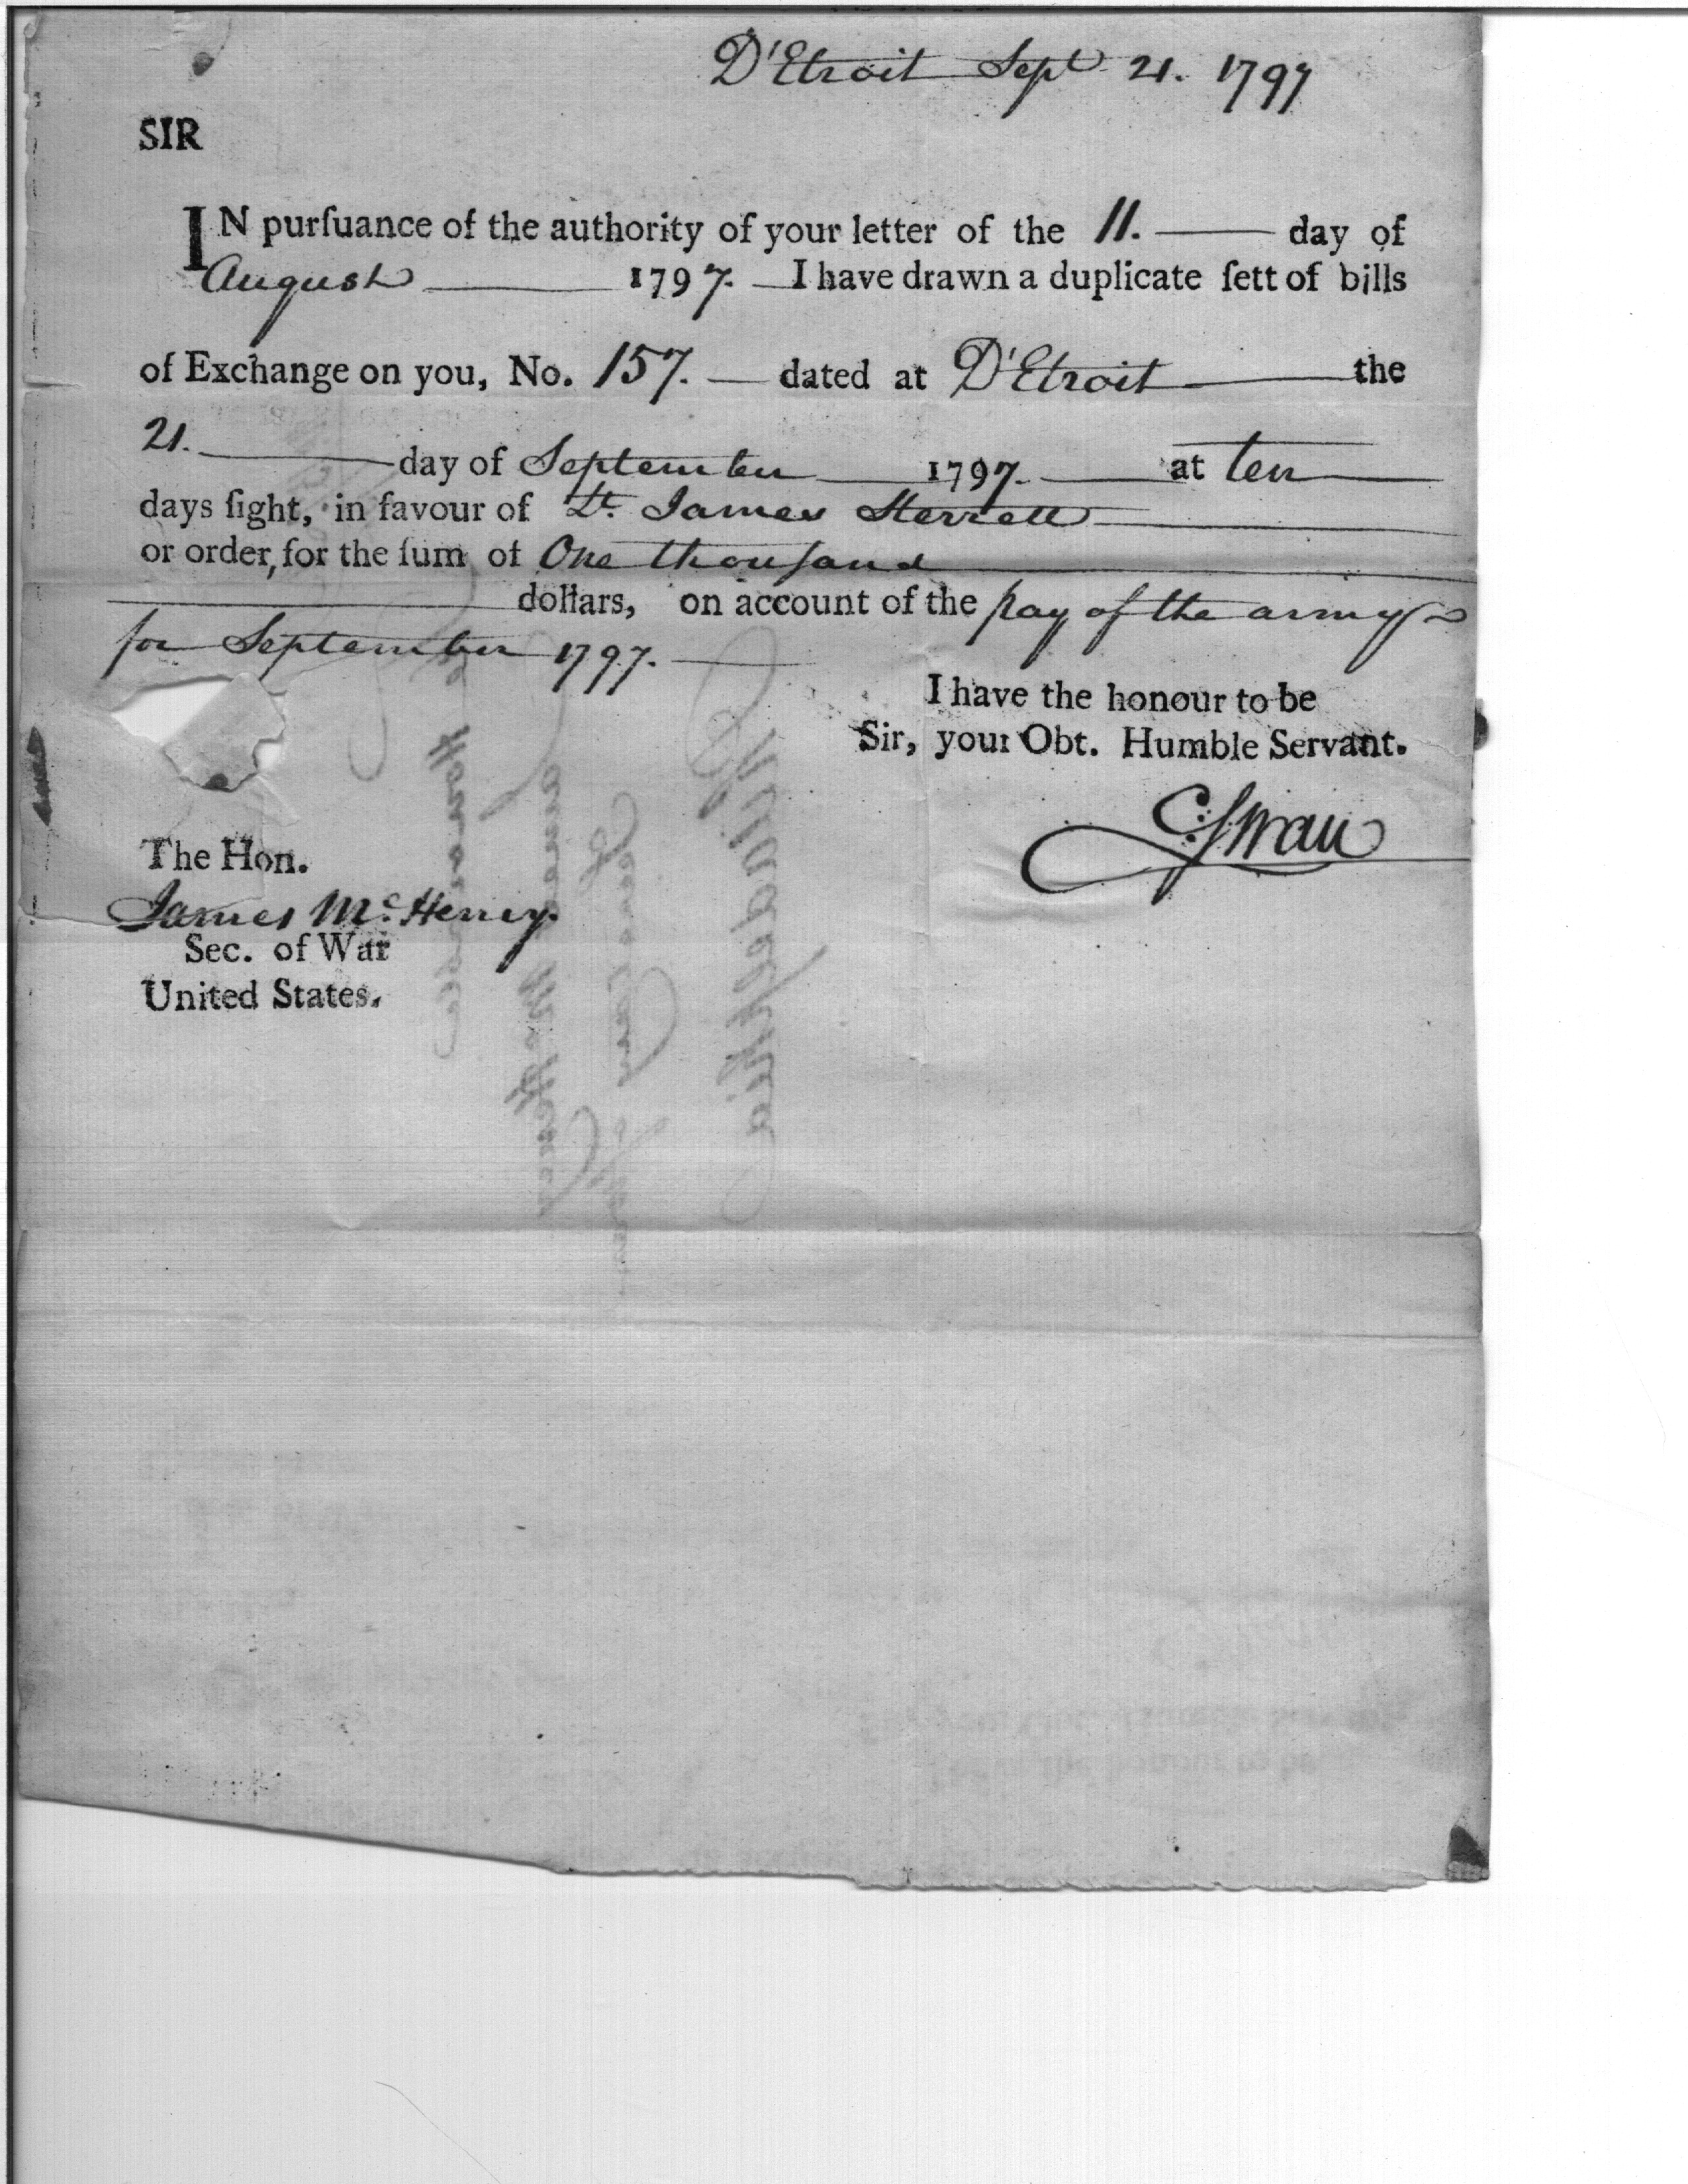 D'Etroit Sept 21. 1797
SIR
IN purſuance of the authority of your letter of the 11. day of
August 1797. I have drawn a duplicate ſett of bills
of Exchange on you, No. 157. dated at D'Etroit the
21. day of September 1797. at ten
days ſight, in favour of Lt. James Sterrett
or order, for the ſum of One thouſand
dollars, on account of the pay of the army
for September 1797.
I have the honour to be
Sir, your Obt. Humble Servant.
C: Swan
The Hon.
James McHenry.
Sec. of War
United States.